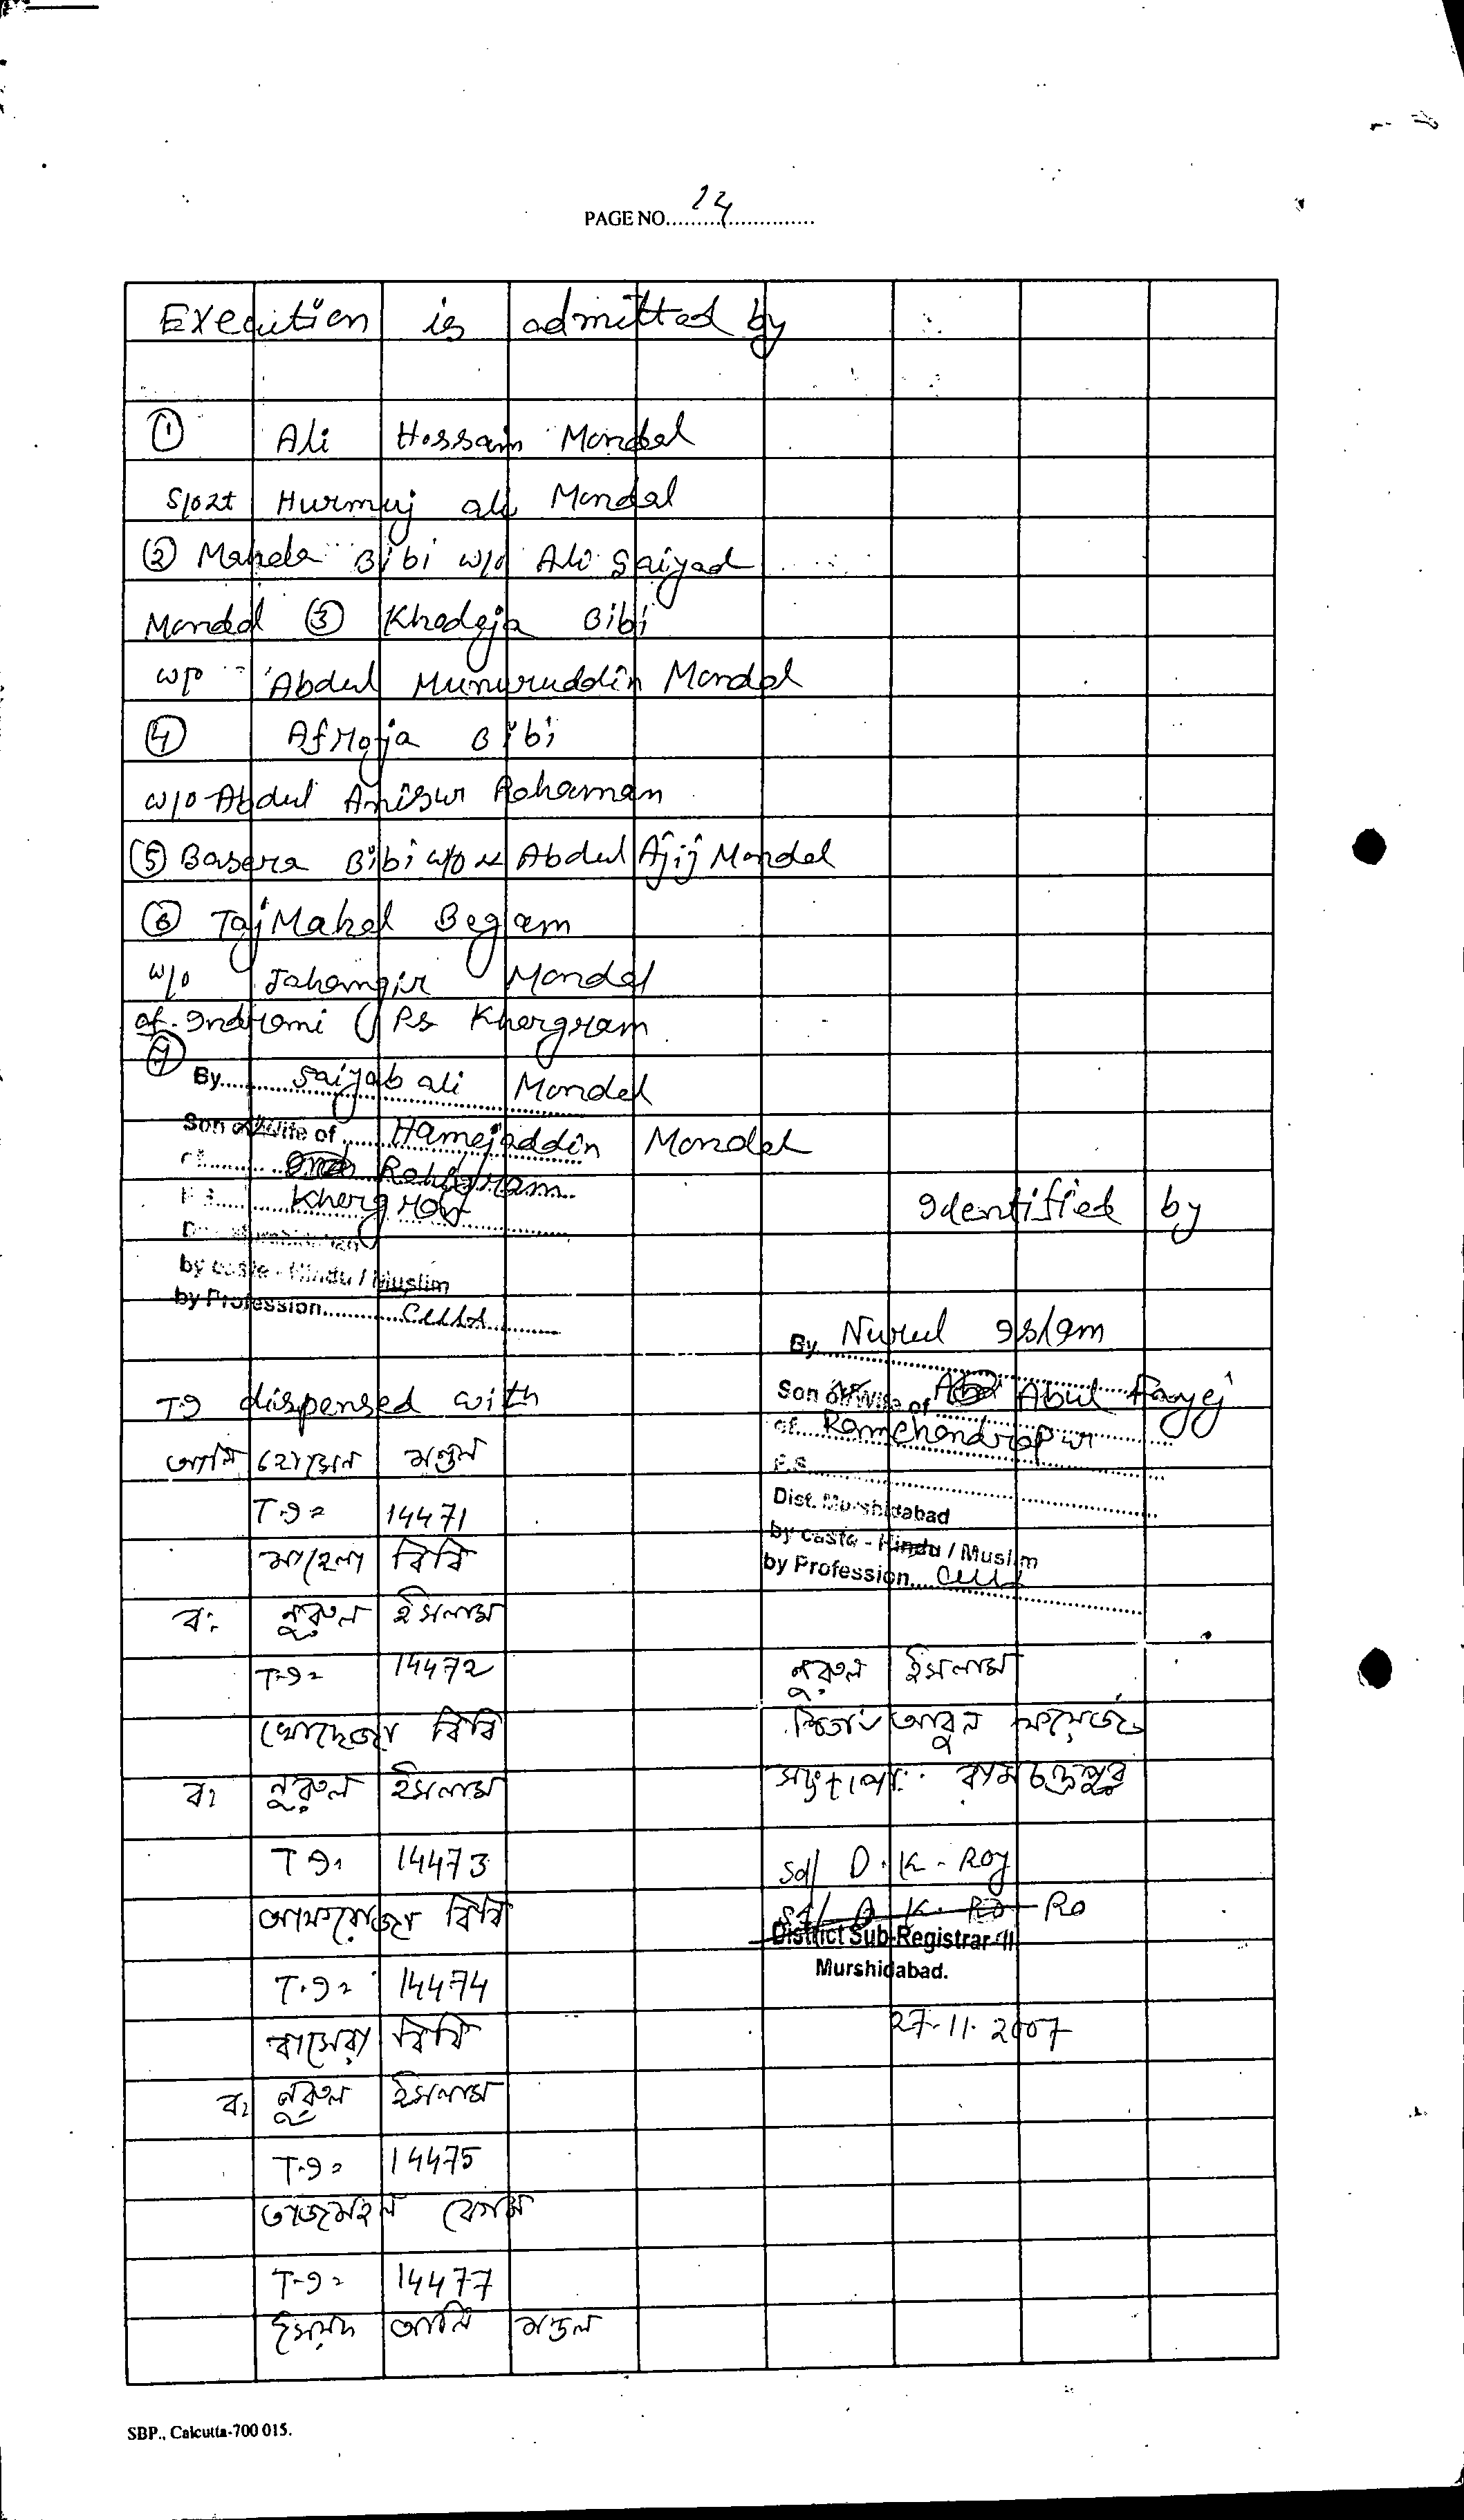 PAGE NO. 24
Execution is admitted by
① Ali Hossain Mondal
S/o Lt Hurmuj ali Mondal
② Mahela Bibi w/o Ali Saiyad
Mondal ③ Khodeja Bibi
w/o Abdul Muniruddin Mondal
④ Afroja Bibi
w/o Abdul Anisur Rohaman
⑤ Basera Bibi w/o Abdul Ajij Mondal
⑥ Taj Mahal Begam
w/o Jahangir Mondal
of. Indrani PS Khargram
⑦
By Saiyab ali Mondal
Son of/Wife of Hamejaddin Mondal
Khargram
by caste - Hindu / Muslim
by Profession
T.I dispensed with
আলি হোসেন মণ্ডল
T.I= 14471
মাহেলা বিবি
ব: নুরুল ইসলাম
T.I= 14472
খোদেজা বিবি
ব: নুরুল ইসলাম
T.I= 14473
আফরোজা বিবি
T.I= 14474
বাসেরা বিবি
ব: নুরুল ইসলাম
T.I= 14475
তাজমহল বেগম
T.I= 14477
আলি মণ্ডল
Identified by
By Nurul Islam
Son of/Wife of Abul Fayej
of Ramchandrapur
P.S.
Dist. Murshidabad
by caste - Hindu / Muslim
by Profession
নুরুল ইসলাম
পিতা আবুল ফয়েজ
সাং+পো: রামচন্দ্রপুর
Sd/ D. K. Roy
District Sub-Registrar-II
Murshidabad.
27.11.2007
SBP., Calcutta-700 015.